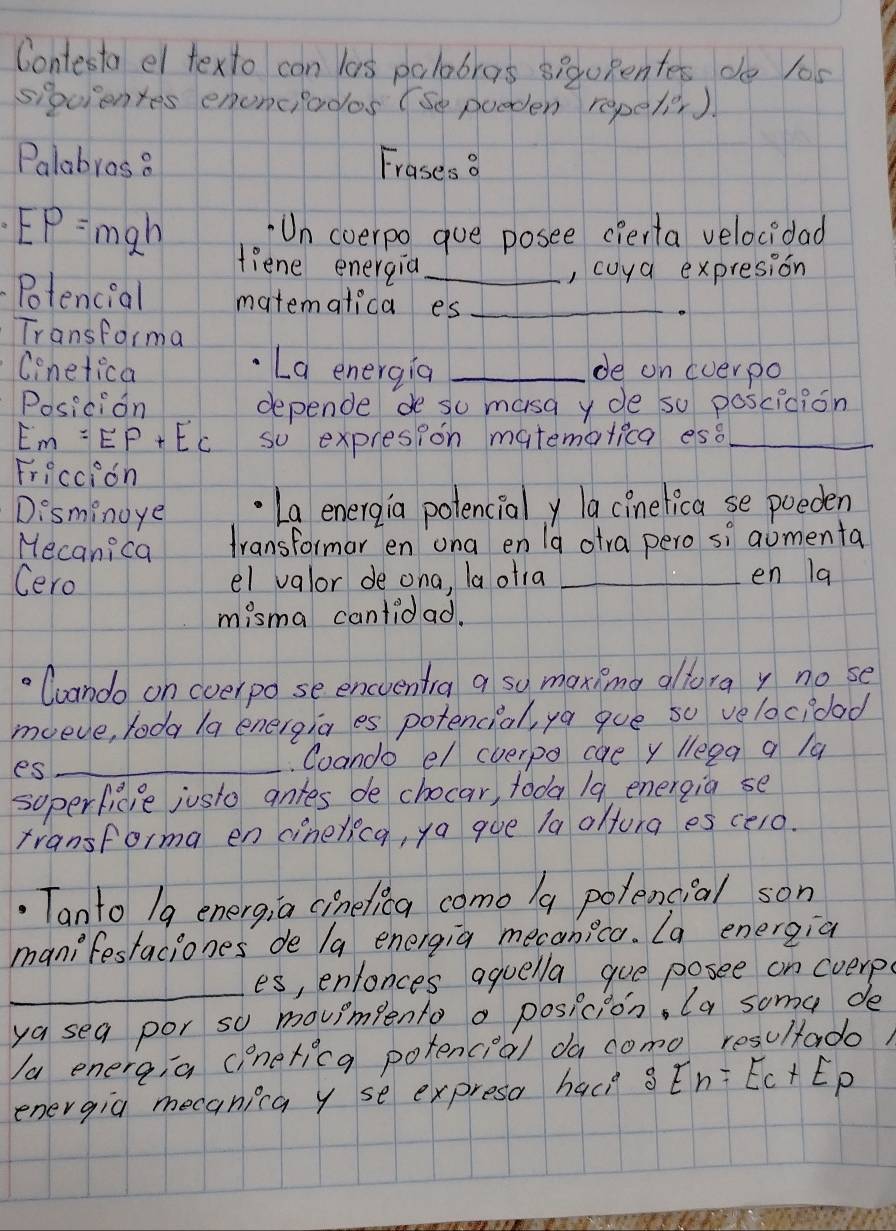 Contesta el texto con las palabras siguientes de los
siguientes enunciados (se pueden repetir).
Palabras: Frases:
· EP = mgh · Un cuerpo que posee cierta velocidad
tiene energia________, cuya expresión
· Potencial matematica es____________.
· Transforma
· Cinetica · La energía ________de un cuerpo
Posición depende de su masa y de su poscición
Em = EP + Ec su expresión matematica es:________
Fricción
Disminuye · La energía potencial y la cinetica se pueden
Mecanica transformar en una en la otra pero si aumenta
Cero el valor de una, la otra __________ en la
misma cantidad.
· Cuando un cuerpo se encuentra a su maxima altura y no se
mueve, toda la energia es potencial, ya que su velocidad
es____________. Cuando el cuerpo cae y llega a la
superficie justo antes de chocar, toda la energia se
transforma en cinetica, ya que la altura es cero.
· Tanto la energia cinetica como la potencial son
manifestaciones de la energia mecanica. La energia
____________es, entonces aquella que posee un cuerpo
ya sea por su movimiento o posición. La suma de
la energia cinetica potencial da como resultado
energia mecanica y se expresa haci : En = Ec + Ep